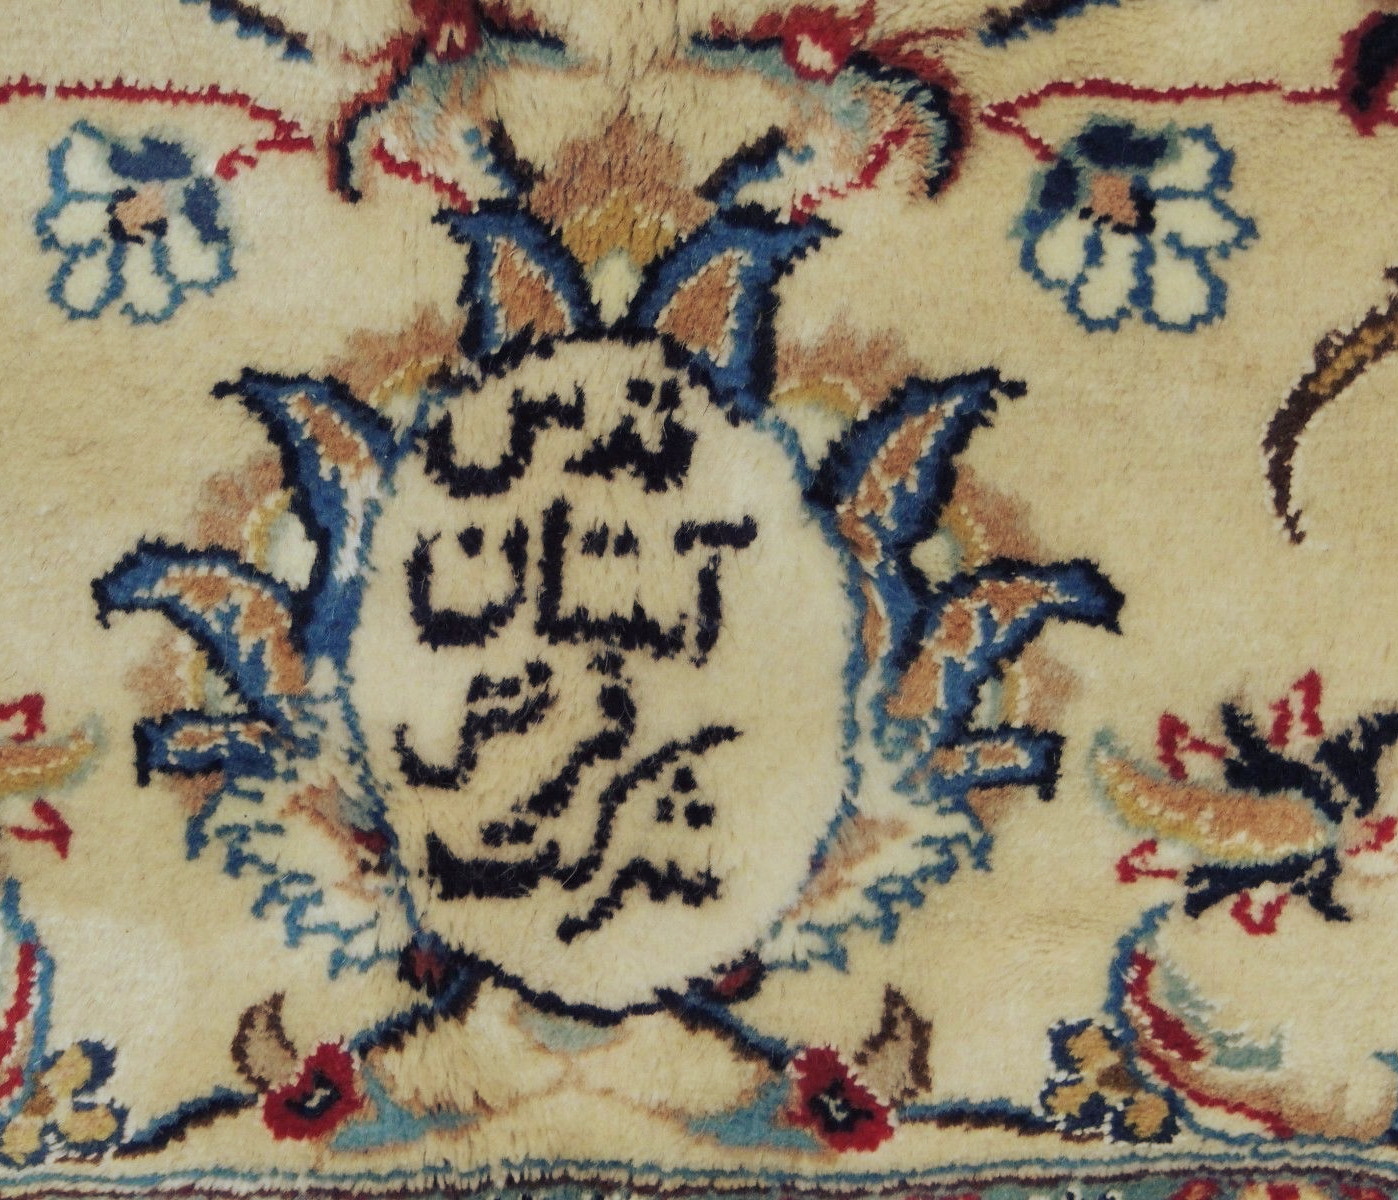 قدس
آستان
فرش
شرکت